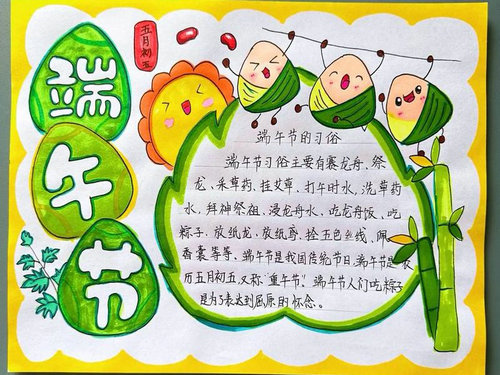 端午节
五月初五
端午节的习俗
端午节习俗主要有赛龙舟、祭
龙、采草药、挂艾草、打午时水、洗草药
水、拜神祭祖、浸龙舟水、吃龙舟饭、吃
粽子、放纸龙、放纸鸢、拴五色丝线、佩
香囊等等、端午节是我国传统节日、端午节是农
历五月初五、又称"重午节"、端午节人们吃粽子
是为了表达到屈原的怀念。